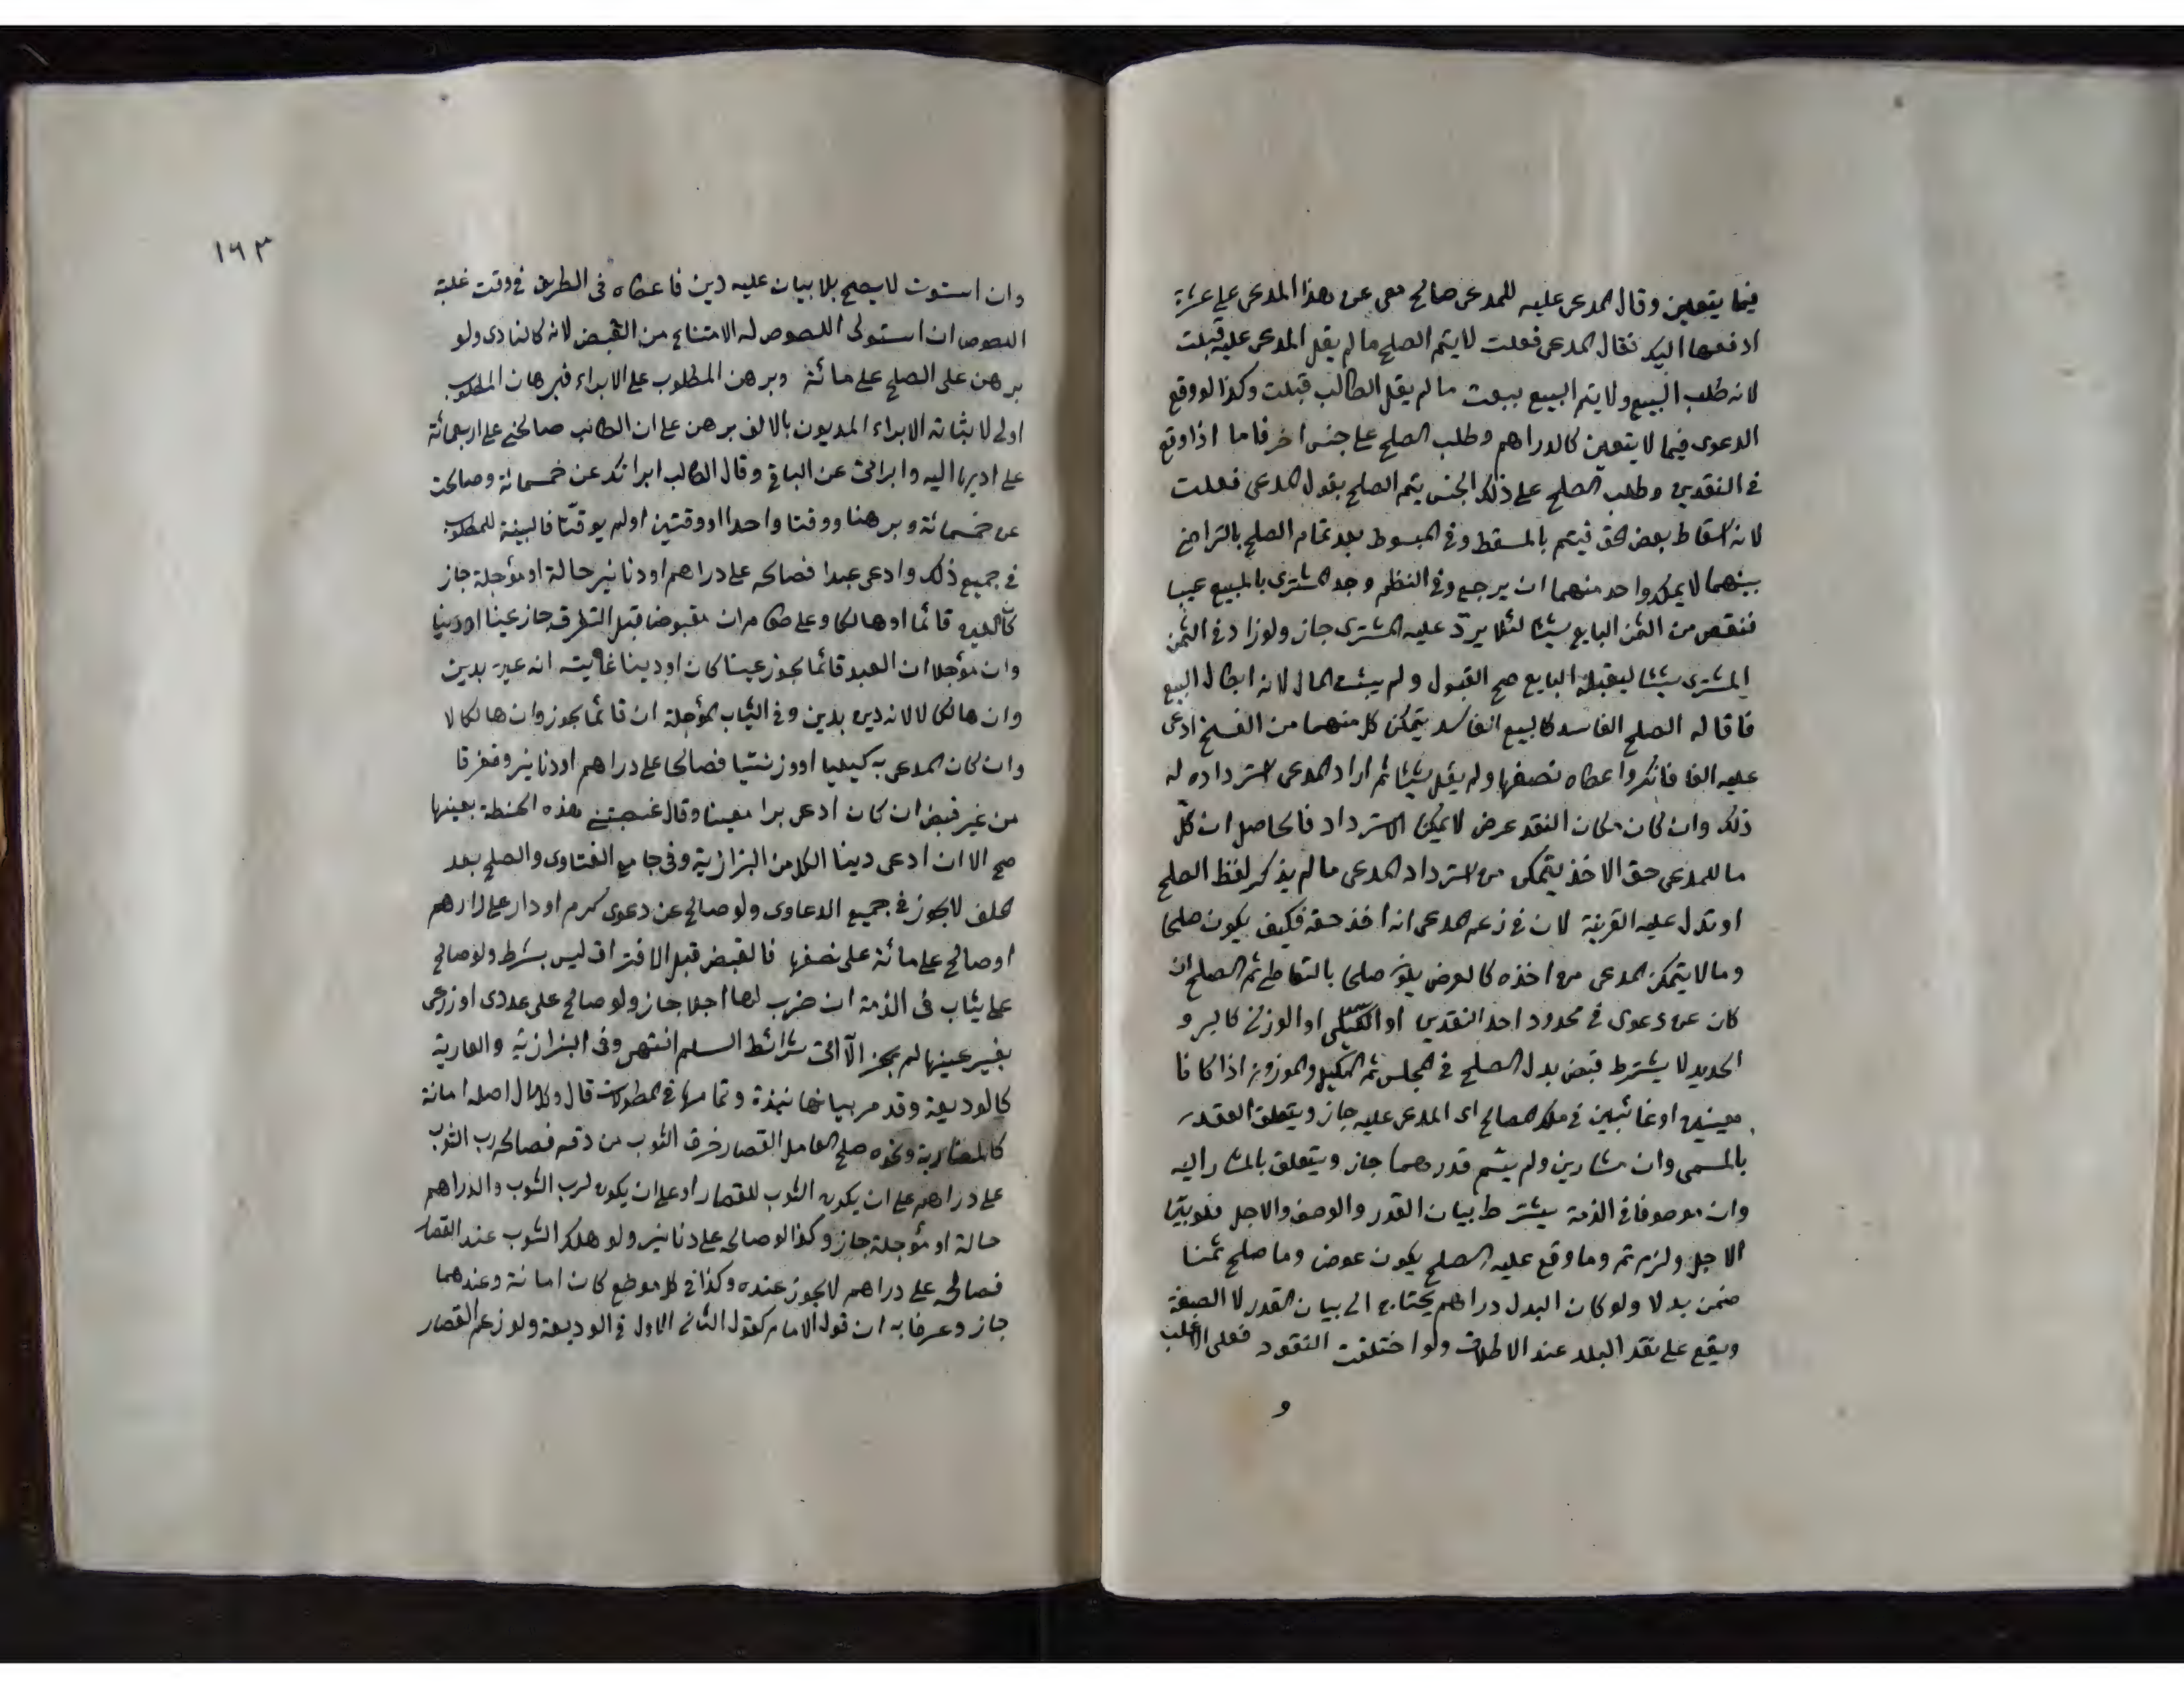 فيما يتعين وقال المدعى عليه للمدعى صالح معى عن هذا المدعى على عشرة
ادفعها اليك فقال المدعى فعلت لا يتم الصلح ما لم يقل المدعى عليه قبلت
لانه طلب البيع ولا يتم البيع ببعت ما لم يقل الطالب قبلت وكذا لو وقع
الدعوى فيما لا يتعين كالدراهم وطلب الصلح على جنس اخر فاما اذا وقع
فى النقدين وطلب الصلح على ذلك الجنس يتم الصلح بقول المدعى فعلت
لانه اسقاط بعض الحق فيتم بالمسقط وفى المبسوط بعد تمام الصلح بالتراضى
بينهما لا يملك واحد منهما ان يرجع وفى النظم وجد المشترى بالمبيع عيبا
فنقص من الثمن البايع شيئا لئلا يردّ عليه المشترى جاز ولو زاد فى الثمن
المشترى شيئا ليقبله البايع صح القبول ولم يثبت المال لانه ابطال البيع
فاقاله الصلح الفاسد كالبيع الفاسد يتمكن كل منهما من الفسخ ادعى
عليه الفا فانكر واعطاه نصفها ولم يقل شيئا ثم اراد المدعى استرداده له
ذلك وان كان مكان النقد عرض لا يمكن الاسترداد فالحاصل ان كلّ
ما للمدعى حق الاخذ يتمكن من استرداد المدعى ما لم يذكر لفظ الصلح
او تدل عليه القرينة لان فى زعم المدعى انه اخذ حقه فكيف يكون صلحا
وما لا يتمكن المدعى من اخذه كالعرض يكون صلحا بالتعاطى ثم الصلح ان
كان عن دعوى فى محدود احد النقدين او الكيلى او الوزنى كالبر و
الحديد لا يشترط قبض بدل الصلح فى المجلس ثم المكيل والموزون اذا كانا
معينين او غائبين فى ملك المصالح اى المدعى عليه جاز ويتعلق العقد
بالمسمى وان مشارين ولم يسم قدرهما جاز ويتعلق بالمشار اليه
وان موصوفا فى الذمة يشترط بيان القدر والوصف والاجل فلو بيّنا
الاجل ولزم ثم وما وقع عليه الصلح يكون عوض وما صلح ثمنا
بدلا ولو كان البدل دراهم يحتاج الى بيان القدر لا الصفة
ويقع على نقد البلد عند الاطلاق ولو اختلفت النقود فعلى الاغلب
و
١٦٣
وان استوت لا يصح بلا بيان عليه دين فاعطاه فى الطريق فى وقت غلبة
اللصوص ان استولى اللصوص له الامتناع من القبض لانه كالنادى ولو
برهن على الصلح على مائة وبرهن المطلوب على الابراء فبرهان المطلوب
اولى لاثباته الابراء المديون بالالف برهن على ان الطالب صالحنى على اربعمائة
على اديها اليه وابرأنى عن الباقى وقال الطالب ابراتك عن خمسمائة وصالحت
عن خمسمائة وبرهنا ووقتا واحدا او وقتين او لم يوقتا فالبينة للمطلوب
فى جميع ذلك وادعى عبدا فصالحه على دراهم او دنانير حالة او مؤجلة جاز
كان العبد قائما او هالكا وعلى طعام ان مقبوضا قبل التفرق جاز عينا او دينا
وان مؤجلا ان العبد قائما يجوز عينا كان او دينا غايته انه عين بدين
وان هالكا لا لانه دين بدين وفى الثياب المؤجلة ان قائما يجوز وان هالكا لا
وان كان المدعى به كيليا او وزنيا فصالحا على دراهم او دنانير وتفرقا
من غير قبض ان كان ادعى برا معينا وقال غصبتنى هذه الحنطة بعينها
صح الا ان ادعى دينا الكل من البزازية وفى جامع الفتاوى والصلح بعد
الحلف لا يجوز فى جميع الدعاوى ولو صالح عن دعوى كرم او دار على دراهم
او صالح على مائة على نصفها فالقبض قبل الافتراق ليس بشرط ولو صالح
على ثياب فى الذمة ان ضرب لها اجلا جاز ولو صالح على عددى او زرعى
بغير عينها لم يجز الا اتى شرائط السلم انتهى وفى البزازية والعارية
كالوديعة وقد مر بيانها نبذة وتمامها فى المطولات قال وكل مال اصله امانة
كالمضاربة ونحوه صلح العامل القصار خرق الثوب من دقه فصالحه رب الثوب
على دراهم على ان يكون الثوب للقصار او على ان يكون لرب الثوب والدراهم
حالة او مؤجلة جاز وكذا لو صالحه على دنانير ولو هلك الثوب عند القصار
فصالحه على دراهم لا يجوز عنده وكذا فى كل موضع كان امانة وعندهما
جاز وعرفنا به ان قول الامام كقول الثانى الاول فى الوديعة ولو زعم القصار